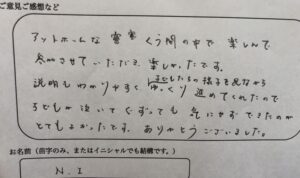 ご意見ご感想など
アットホームな雰囲気の中で楽しんで
参加させていただき、楽しかったです。
説明もわかりやすく子どもたちの様子を見ながら
ゆっくり進めてくれたので
子どもが泣いてぐずっても気にせずできたのが
とてもよかったです。ありがとうございました。
お名前(苗字のみ、またはイニシャルでも結構です。)
N.I